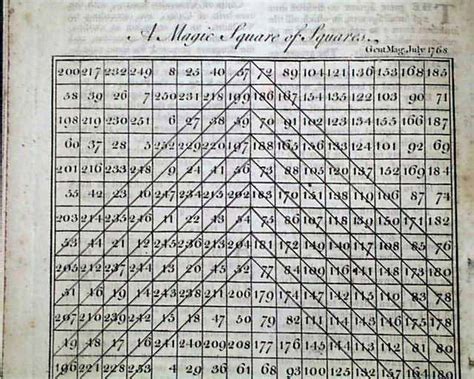 A Magic Square of Squares.
Gent Mag. July 1768
200 217 232 249 8 25 40 57 72 89 104 121 136 153 168 185
58 39 26 7 250 231 218 199 186 167 154 135 122 103 90 71
198 219 230 251 6 27 38 59 70 91 102 123 134 155 166 187
60 37 28 5 252 229 220 197 188 165 156 133 124 101 92 69
201 216 233 248 9 24 41 56 73 88 105 120 137 152 169 184
55 42 23 10 247 234 215 202 183 170 151 138 119 106 87 74
203 214 235 246 11 22 43 54 75 86 107 118 139 150 171 182
53 44 21 12 245 236 213 204 181 172 149 140 117 108 85 76
205 212 237 244 13 20 45 52 77 84 109 116 141 148 173 180
51 46 19 14 243 238 211 206 179 174 147 142 115 110 83 78
207 210 239 242 15 18 47 50 79 82 111 114 143 146 175 178
49 48 17 16 241 240 209 208 177 176 145 144 113 112 81 80
196 221 228 253 4 29 36 61 68 93 100 125 132 157 164 189